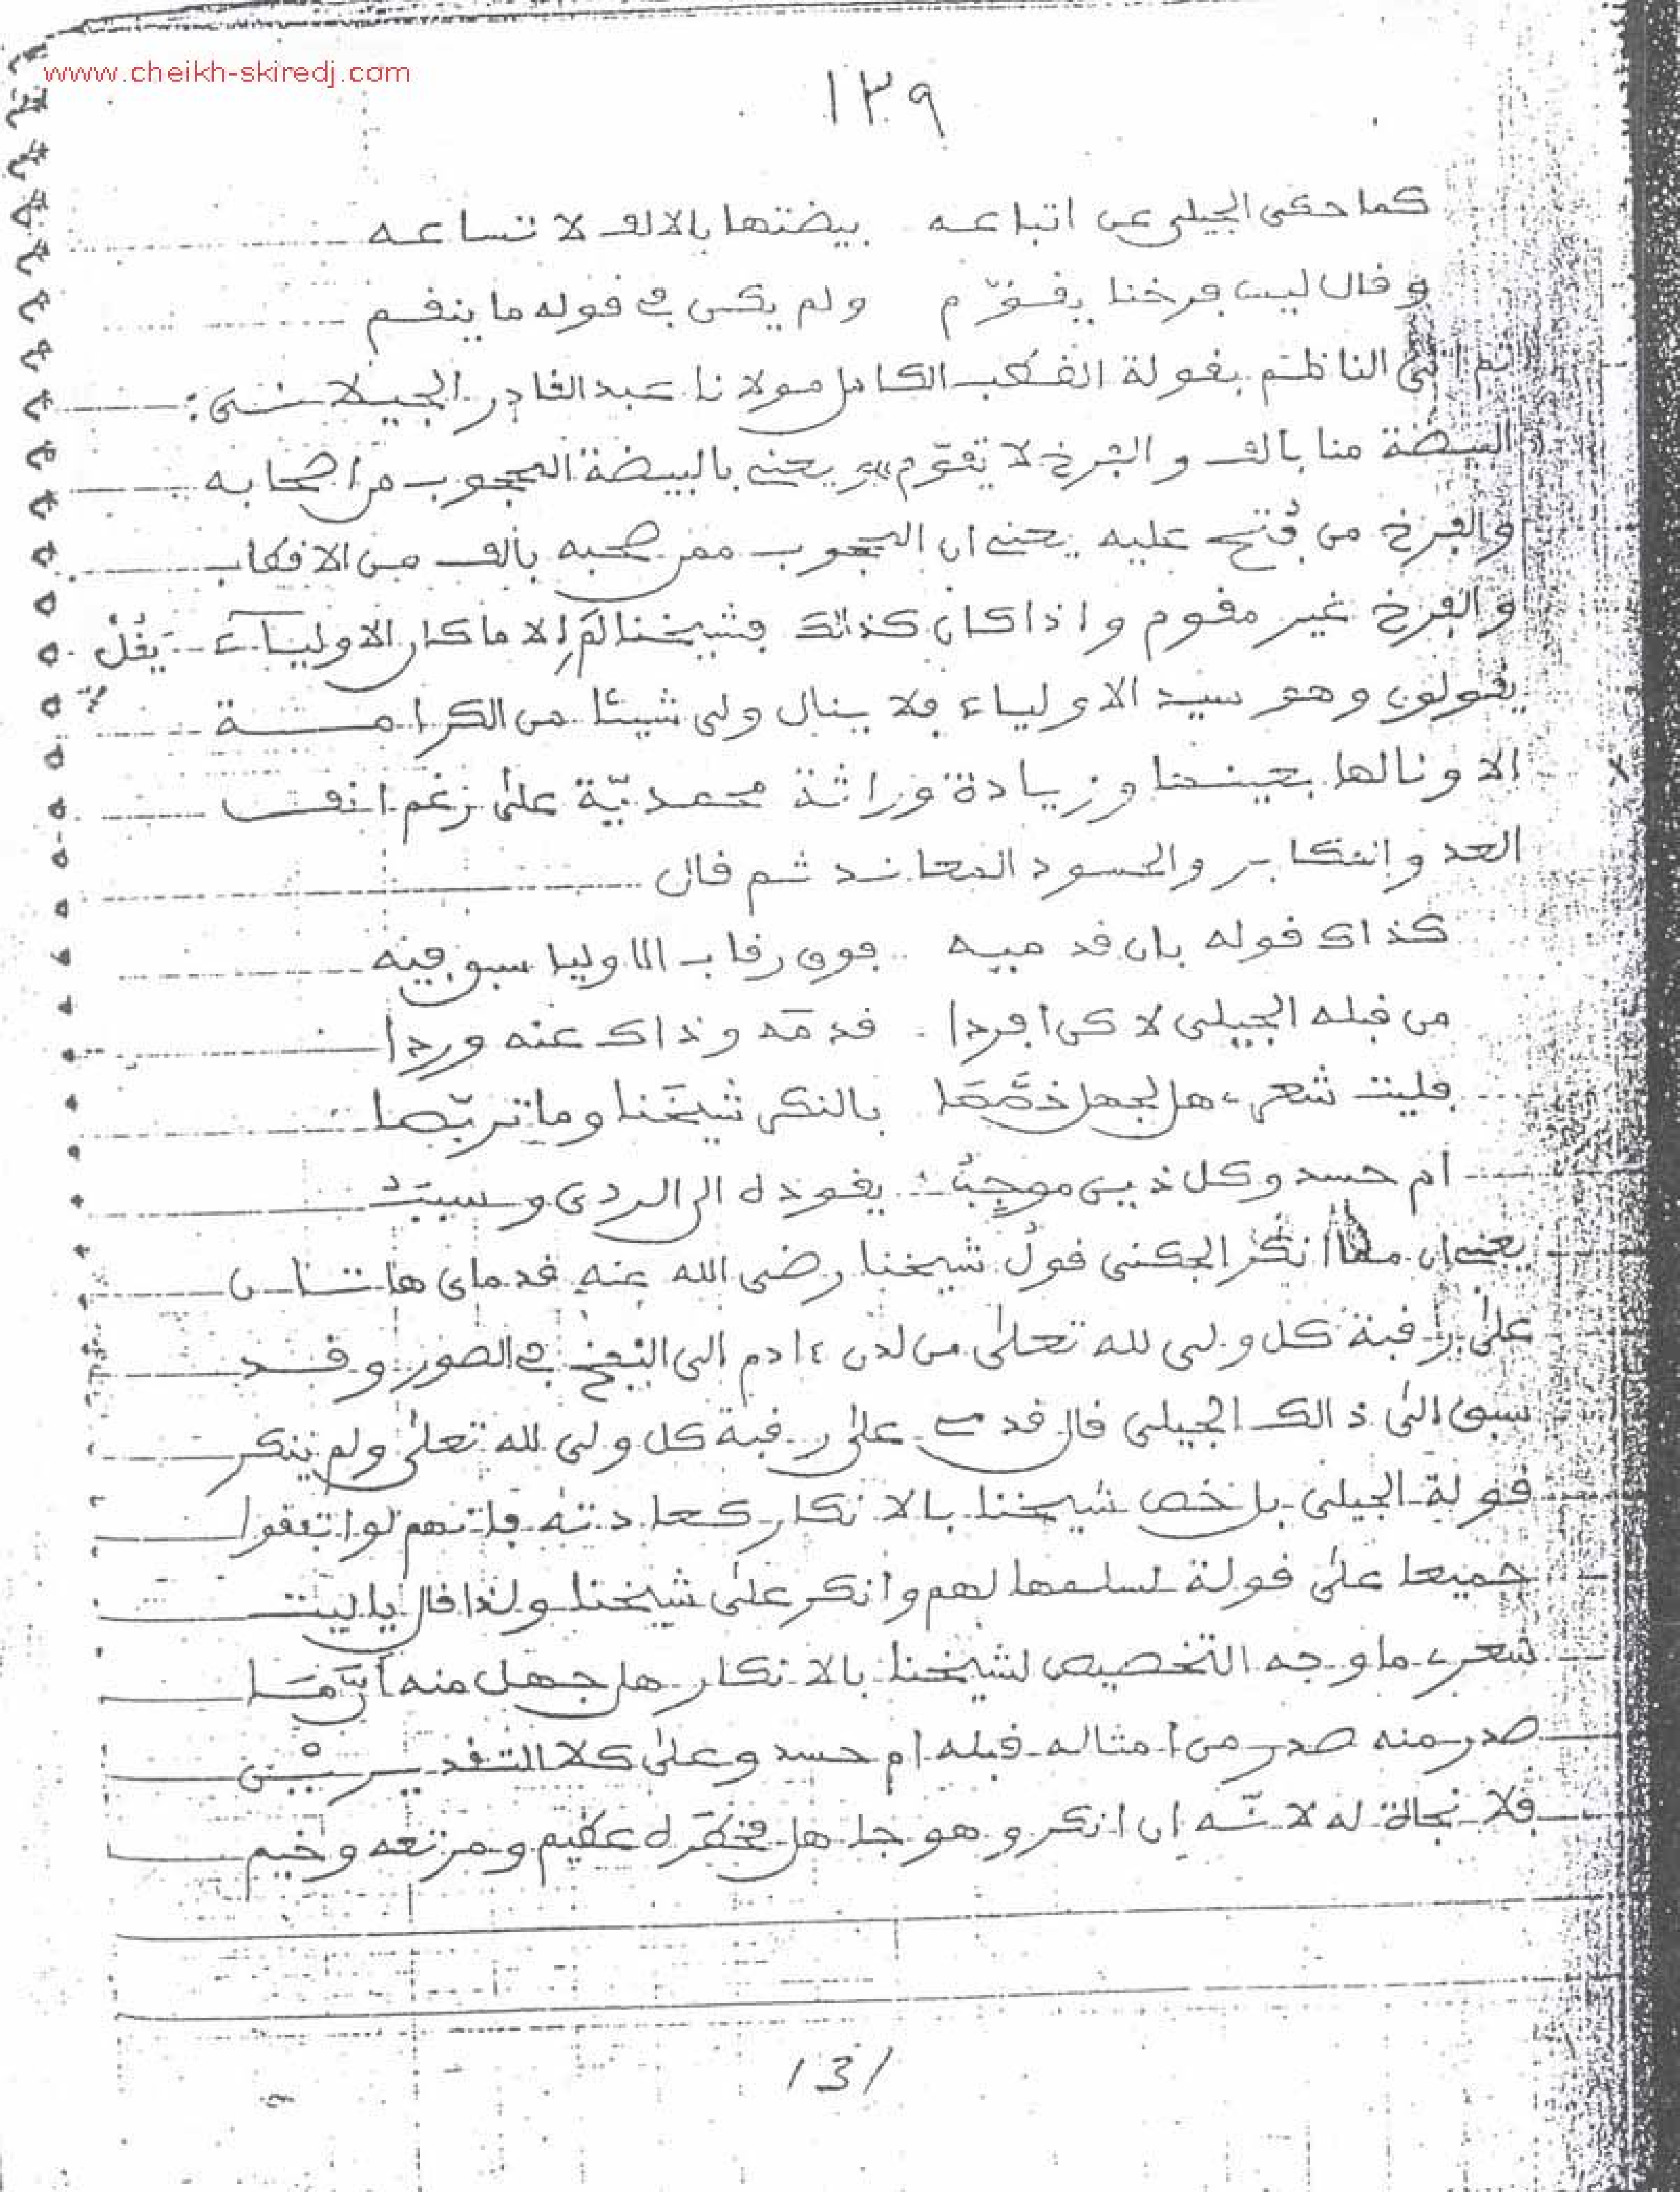 www.cheikh-skiredj.com
١٣٩
كما حكى الجيلى عن اتباعه بيضتها بالالف لا تساعه
وقال ليس فرخنا يقوّم ولم يكن في قوله ما ينقم
ثم اتى الناظم بقولة القطب الكامل مولانا عبد القادر الجيلانى :
البيضة منا بالف والفرخ لا يقوّم» ويعنى بالبيضة المحجوب من اصحابه
والفرخ من فُتح عليه يعنى ان المحجوب ممن صحبه بألف من الاقطاب
والفرخ غير مقوم واذا كان كذلك فشيخنا لَم إلا ما كان الاولياء يَقُلْ
يقولون وهو سيد الاولياء فلا ينال ولى شيئا من الكرامة
الا ونالها بعينها وزيادة وراثة محمديّة على رغم انف
العدو انتكابر والحسود المعاند ثم قال
كذاك قوله بان قدميه فوق رقاب الاوليا سبق فيه
من قبله الجيلى لاكن افردا قدمَه وذاك عنه وردا
فليت شعرى هل لجهل خصّصا بالنكر شيخَنا وما تربّصا
ام حسد وكل ذين موجِبُ يقوده الى الردى وسبب
يعنى ان مما انكر الجكنى قول شيخنا رضى الله عنه قدماى هاتان
على رقبة كل ولى لله تعلى من لدن ءادم الى النفخ في الصور وقد
سبق الى ذالك الجيلى قال قدمى على رقبة كل ولى لله تعلى ولم ينكر
قولة الجيلى بل خص شيخنا بالانكار كعادته فإنهم لو اتفقوا
جميعا على قولة لسلمها لهم وانكر على شيخنا ولذا قال يا ليت
شعرى ما وجه التخصيص لشيخنا بالانكار هل جهل منه أنّ ما
صدر منه صدر من امثاله قبله ام حسد وعلى كلا التقديرين
فلا نجاة له لانّه ان انكر وهو جاهل فخطره عظيم ومرتعه وخيم
131